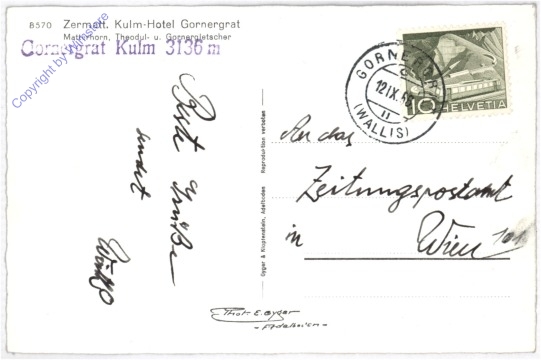 B570 Zermatt. Kulm-Hotel Gornergrat
Matterhorn, Theodul- u. Gornergletscher
Gornergrat Kulm 3136 m
Copyright by Wihstore
GORNERGRAT
12.IX.
11
(WALLIS)
10 HELVETIA
Beste Grüße
sendet
An das
Zeitungspostamt
in Wien 101
Gyger & Klopfenstein, Adelboden Reproduktion verboten
Phot. E. Gyger
- Adelboden -